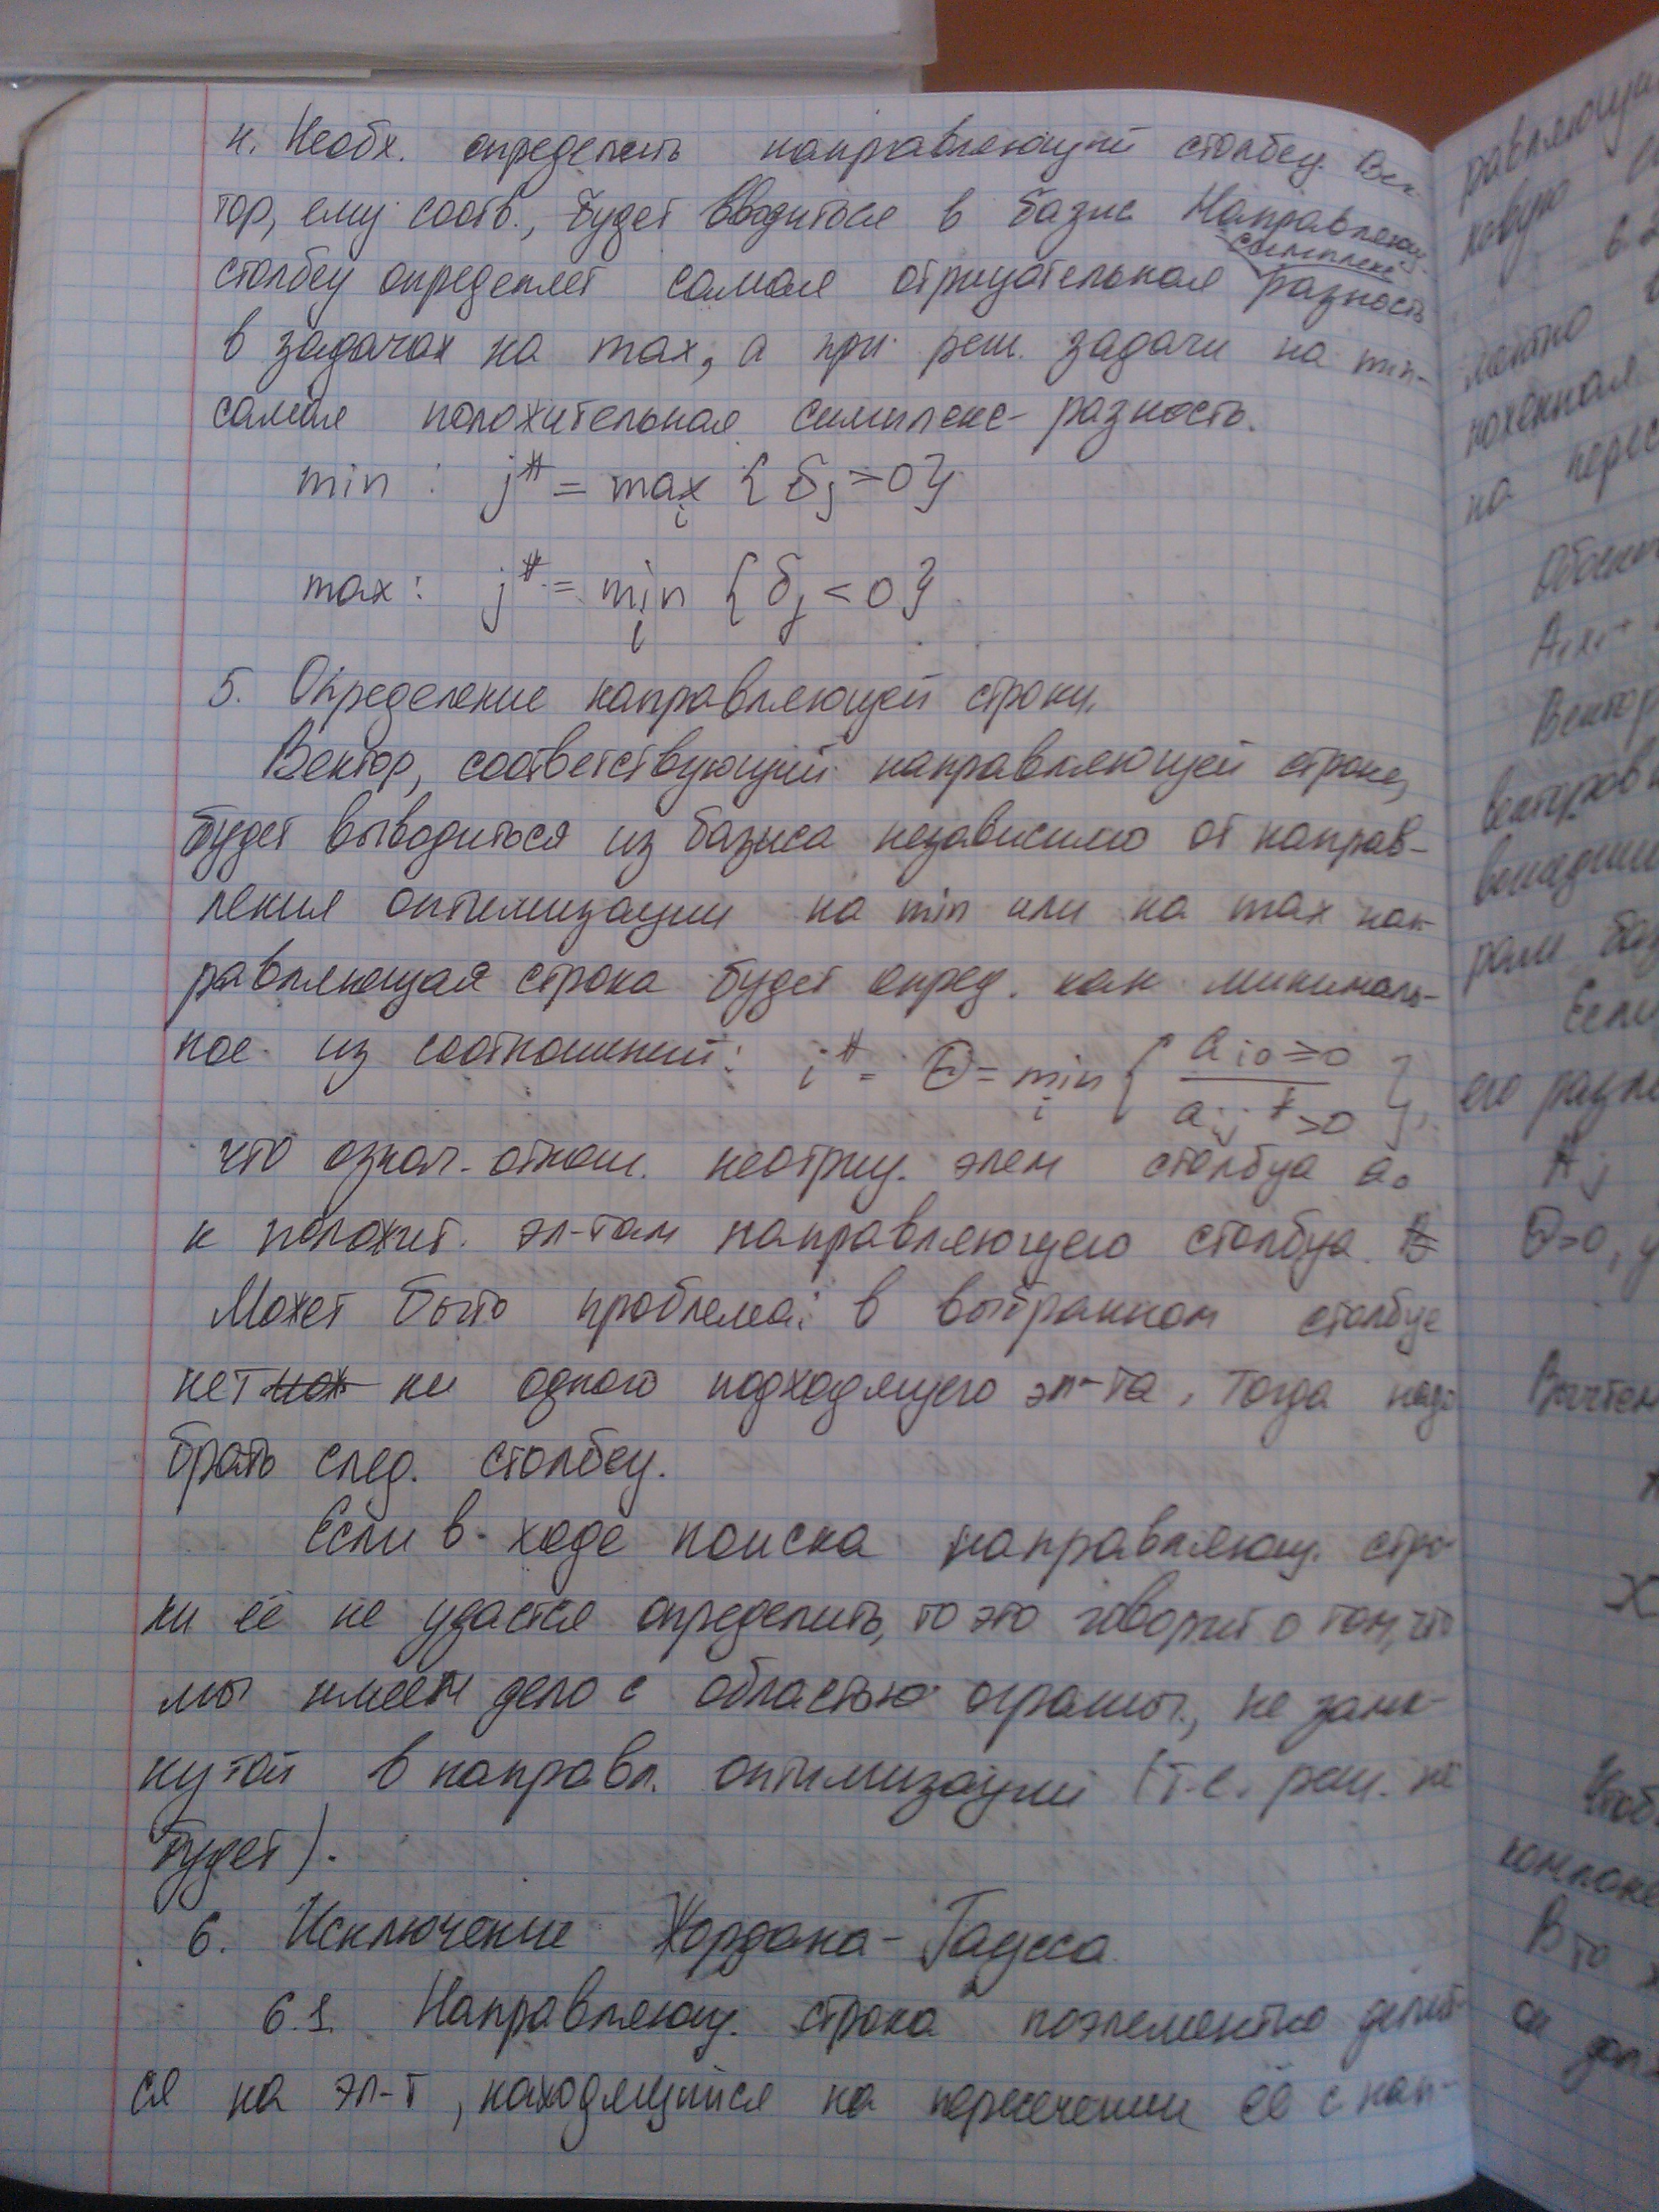 4. Необх. определить направляющий столбец. Век-
тор, ему соотв., будет вводиться в базис Направляющ.
симплекс-
столбец определяет самая отрицательная разность
в задачах на max, а при реш. задачи на min-
самая положительная симплекс-разность.
min : j* = max {δj>0}
i
max: j* = min {δj<0}
i
5. Определение направляющей строки.
Вектор, соответствующий направляющей строке,
будет выводиться из базиса независимо от направ-
ления оптимизации на min или на max нап-
равляющая строка будет опред. как минималь-
ное из соотношений: i* = Θ = min { ai0≥0 / aij*>0 },
i
что означ. отнош. неотриц. элем столбца a0
к положит. эл-там направляющего столбца. В
Может быть проблема: в выбранном столбце
нет мож ни одного подходящего эл-та, тогда надо
брать след. столбец.
Если в ходе поиска направляющ. стро-
ки её не удастся определить, то это говорит о том, что
мы имеем дело с областью огранич., не замк-
нутой в направл. оптимизации (т.е. реш. не
будет).
6. Исключение Жордана-Гаусса
6.1. Направляющ. строка поэлементно делит-
ся на эл-т, находящийся на пересечении её с нап-
равляющи
ковую
нахенная
на перес
Вектор
Если
Aj
Θ>0, у
X
Чтоб
В то